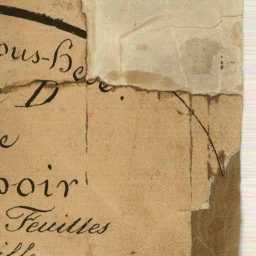 ous-He
D
e
poir
Feuilles
ille